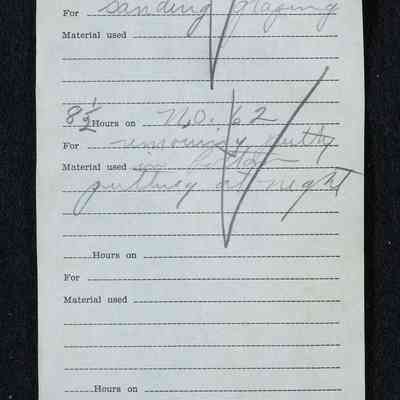 For sanding glazing
Material used
8 1/2 Hours on No. 62
For removing putty
Material used
puttney at night
Hours on
For
Material used
Hours on